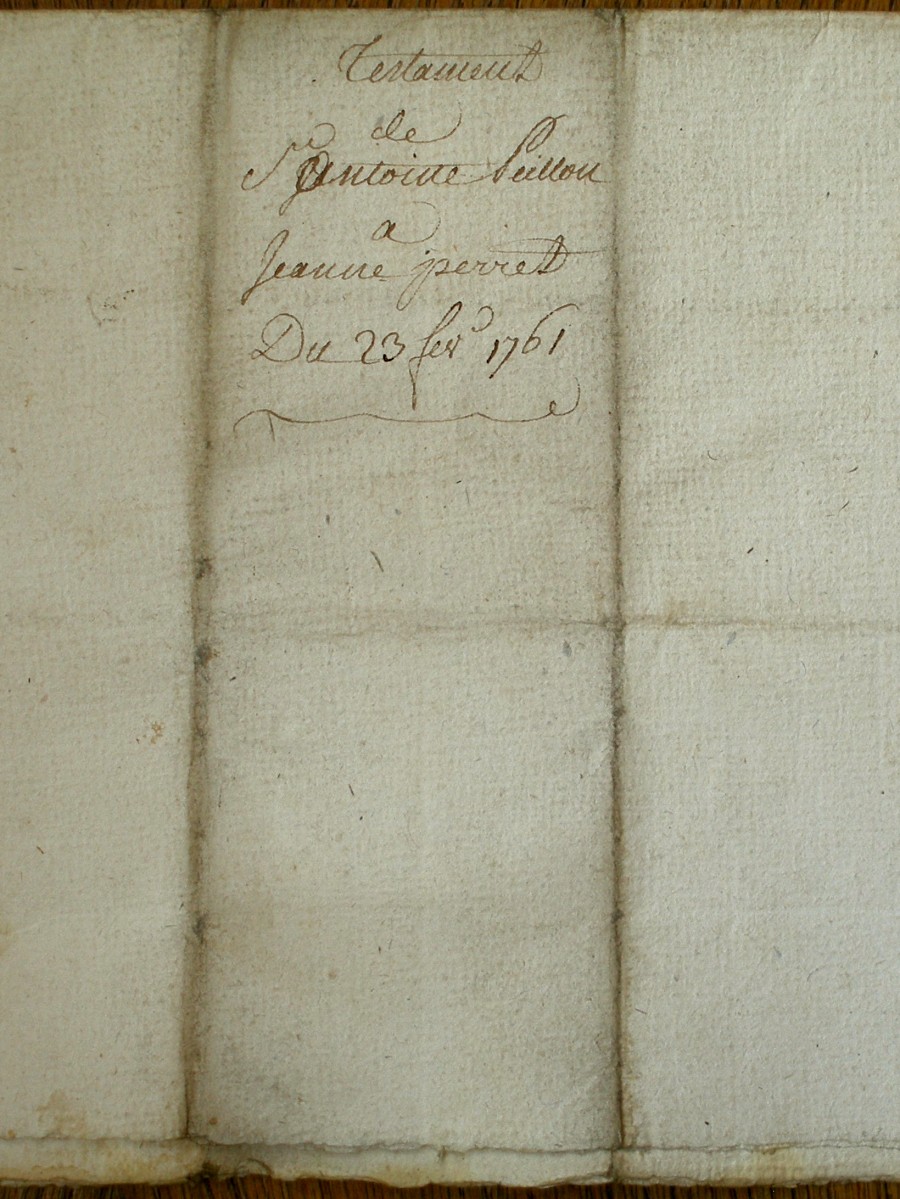 Testament
de
Sr Antoine Peillon
a
Jeanne perret
Du 23 fevr 1761